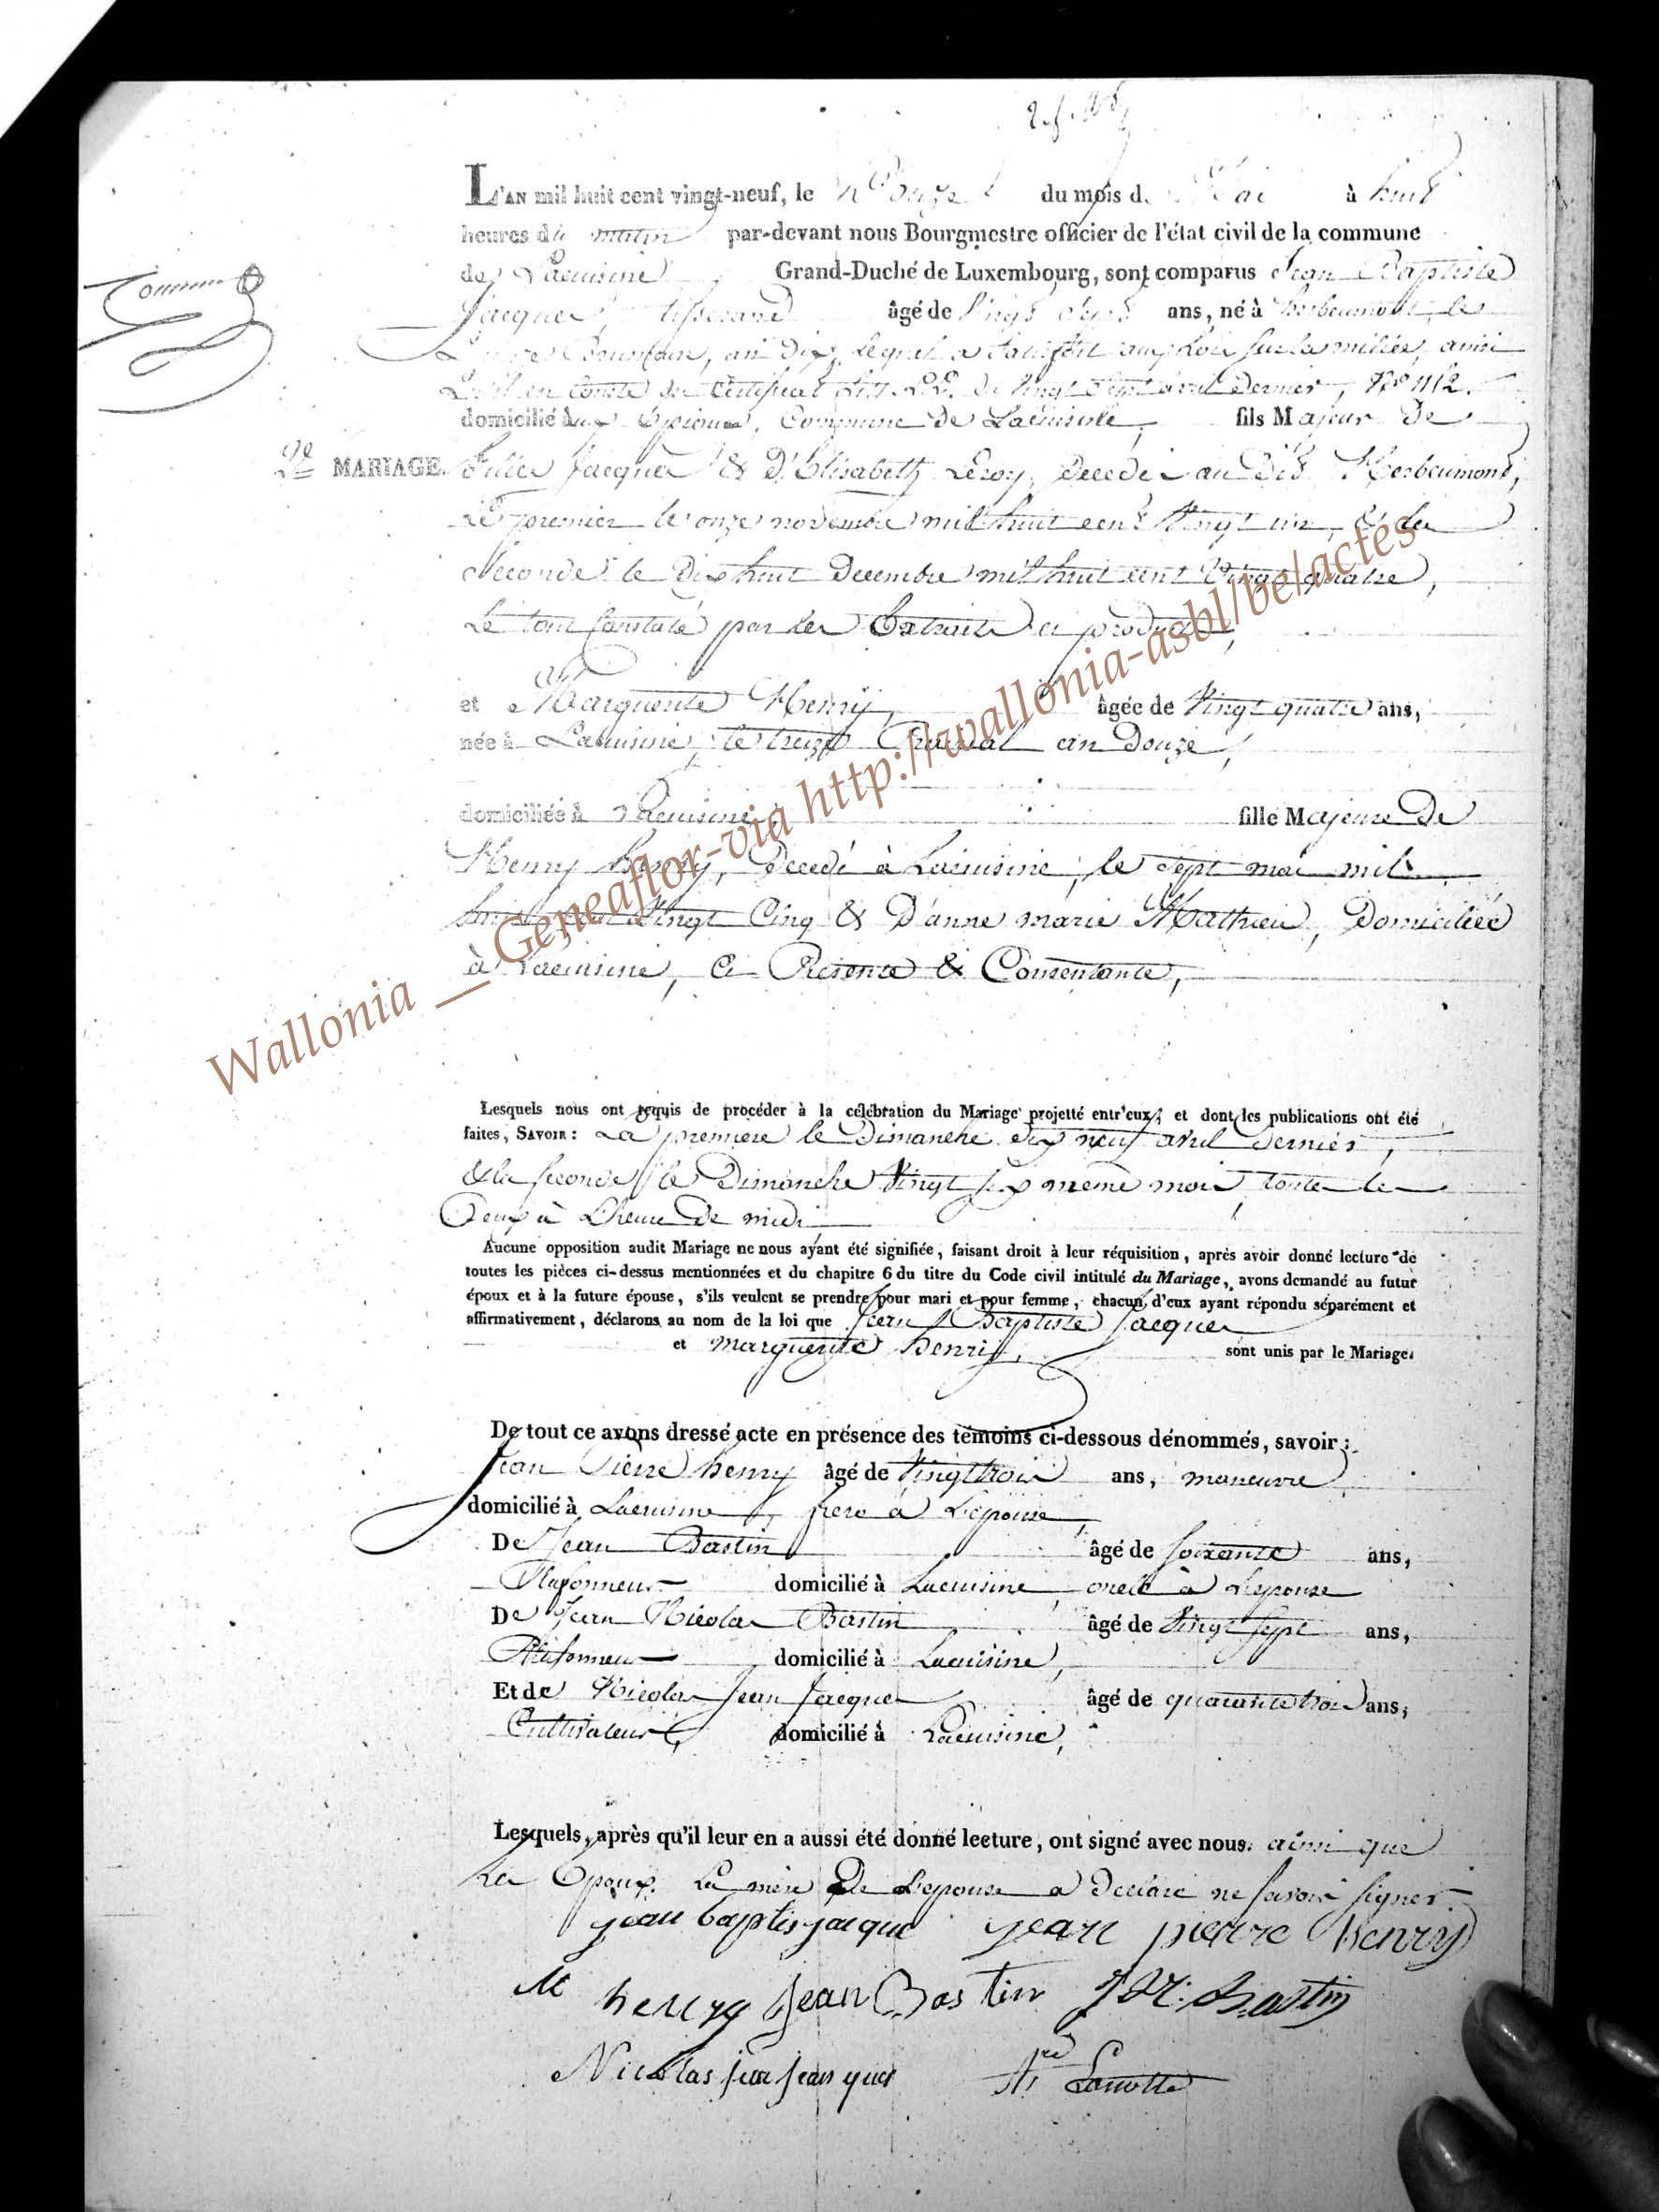 L'AN mil huit cent vingt-neuf, le Douze du mois de Mai à huit
heures du matin par-devant nous Bourgmestre officier de l'état civil de la commune
de Lacuisine Grand-Duché de Luxembourg, sont comparus Jean Baptiste
Jacques, tisserand âgé de Vingt sept ans, né à herbeumont, le
an dix, lequel a satisfait aux Lois sur la milice, ainsi
du Certificat Litt. L.L. du Vingt sept avril dernier, N° 112.
domicilié aux Epioux, Commune de Lacuisine, fils Majeur de
2e MARIAGE. Jacques & D'Elisabeth Leroy, décédé au Dit Herbeumont,
Le premier le onze novembre mil huit cent Vingt un, & la
Seconde le Dix huit Decembre mil huit cent Vingt quatre,
Le tout Constaté par les Extraits ci produits,
et Marguerite Henry, âgée de Vingt quatre ans,
née à Lacuisine, le treize Prairial an Douze,
domiciliée à Lacuisine, fille Majeure De
Henry henry, Decedé à Lacuisine, le Sept mai mil
huit cent Vingt Cinq & D'anne marie Mathieu, Domiciliée
à Lacuisine, Ci Présente & Consentante,
Lesquels nous ont requis de procéder à la célébration du Mariage projetté entr'eux, et dont les publications ont été
faites, SAVOIR : La premiere le Dimanche dix neuf avril dernier,
& la seconde le Dimanche Vingt six même mois, toutes les
Deux à L'heure De midi
Aucune opposition audit Mariage ne nous ayant été signifiée, faisant droit à leur réquisition, après avoir donné lecture de
toutes les pièces ci-dessus mentionnées et du chapitre 6 du titre du Code civil intitulé du Mariage, avons demandé au futur
époux et à la future épouse, s'ils veulent se prendre pour mari et pour femme, chacun d'eux ayant répondu séparément et
affirmativement, déclarons au nom de la loi que Jean Baptiste Jacques
et marguerite henry, sont unis par le Mariage.
De tout ce avons dressé acte en présence des témoins ci-dessous dénommés, savoir :
Jean Pierre henry âgé de Vingt trois ans, maneuvre
domicilié à Lacuisine, frere à L'epouse,
De Jean Bastin âgé de soixante ans,
Plafonneur domicilié à Lacuisine, oncle à L'epouse
De Jean Nicolas Bastin âgé de Vingt sept ans,
Plafonneur domicilié à Lacuisine,
Et de Nicolas Jean Jacques âgé de quarante trois ans,
Cultivateur, domicilié à Lacuisine,
Lesquels, après qu'il leur en a aussi été donné lecture, ont signé avec nous. ainsi que
Les Epoux. La mère De L'epouse a Declaré ne savoir signer
jean baptis jaque jean pierre henry
M henry Jean Bastin J N. Bastin
Nicolas jean jacques
Wallonia __ Geneaflor-via http://wallonia-asbl/be/actes